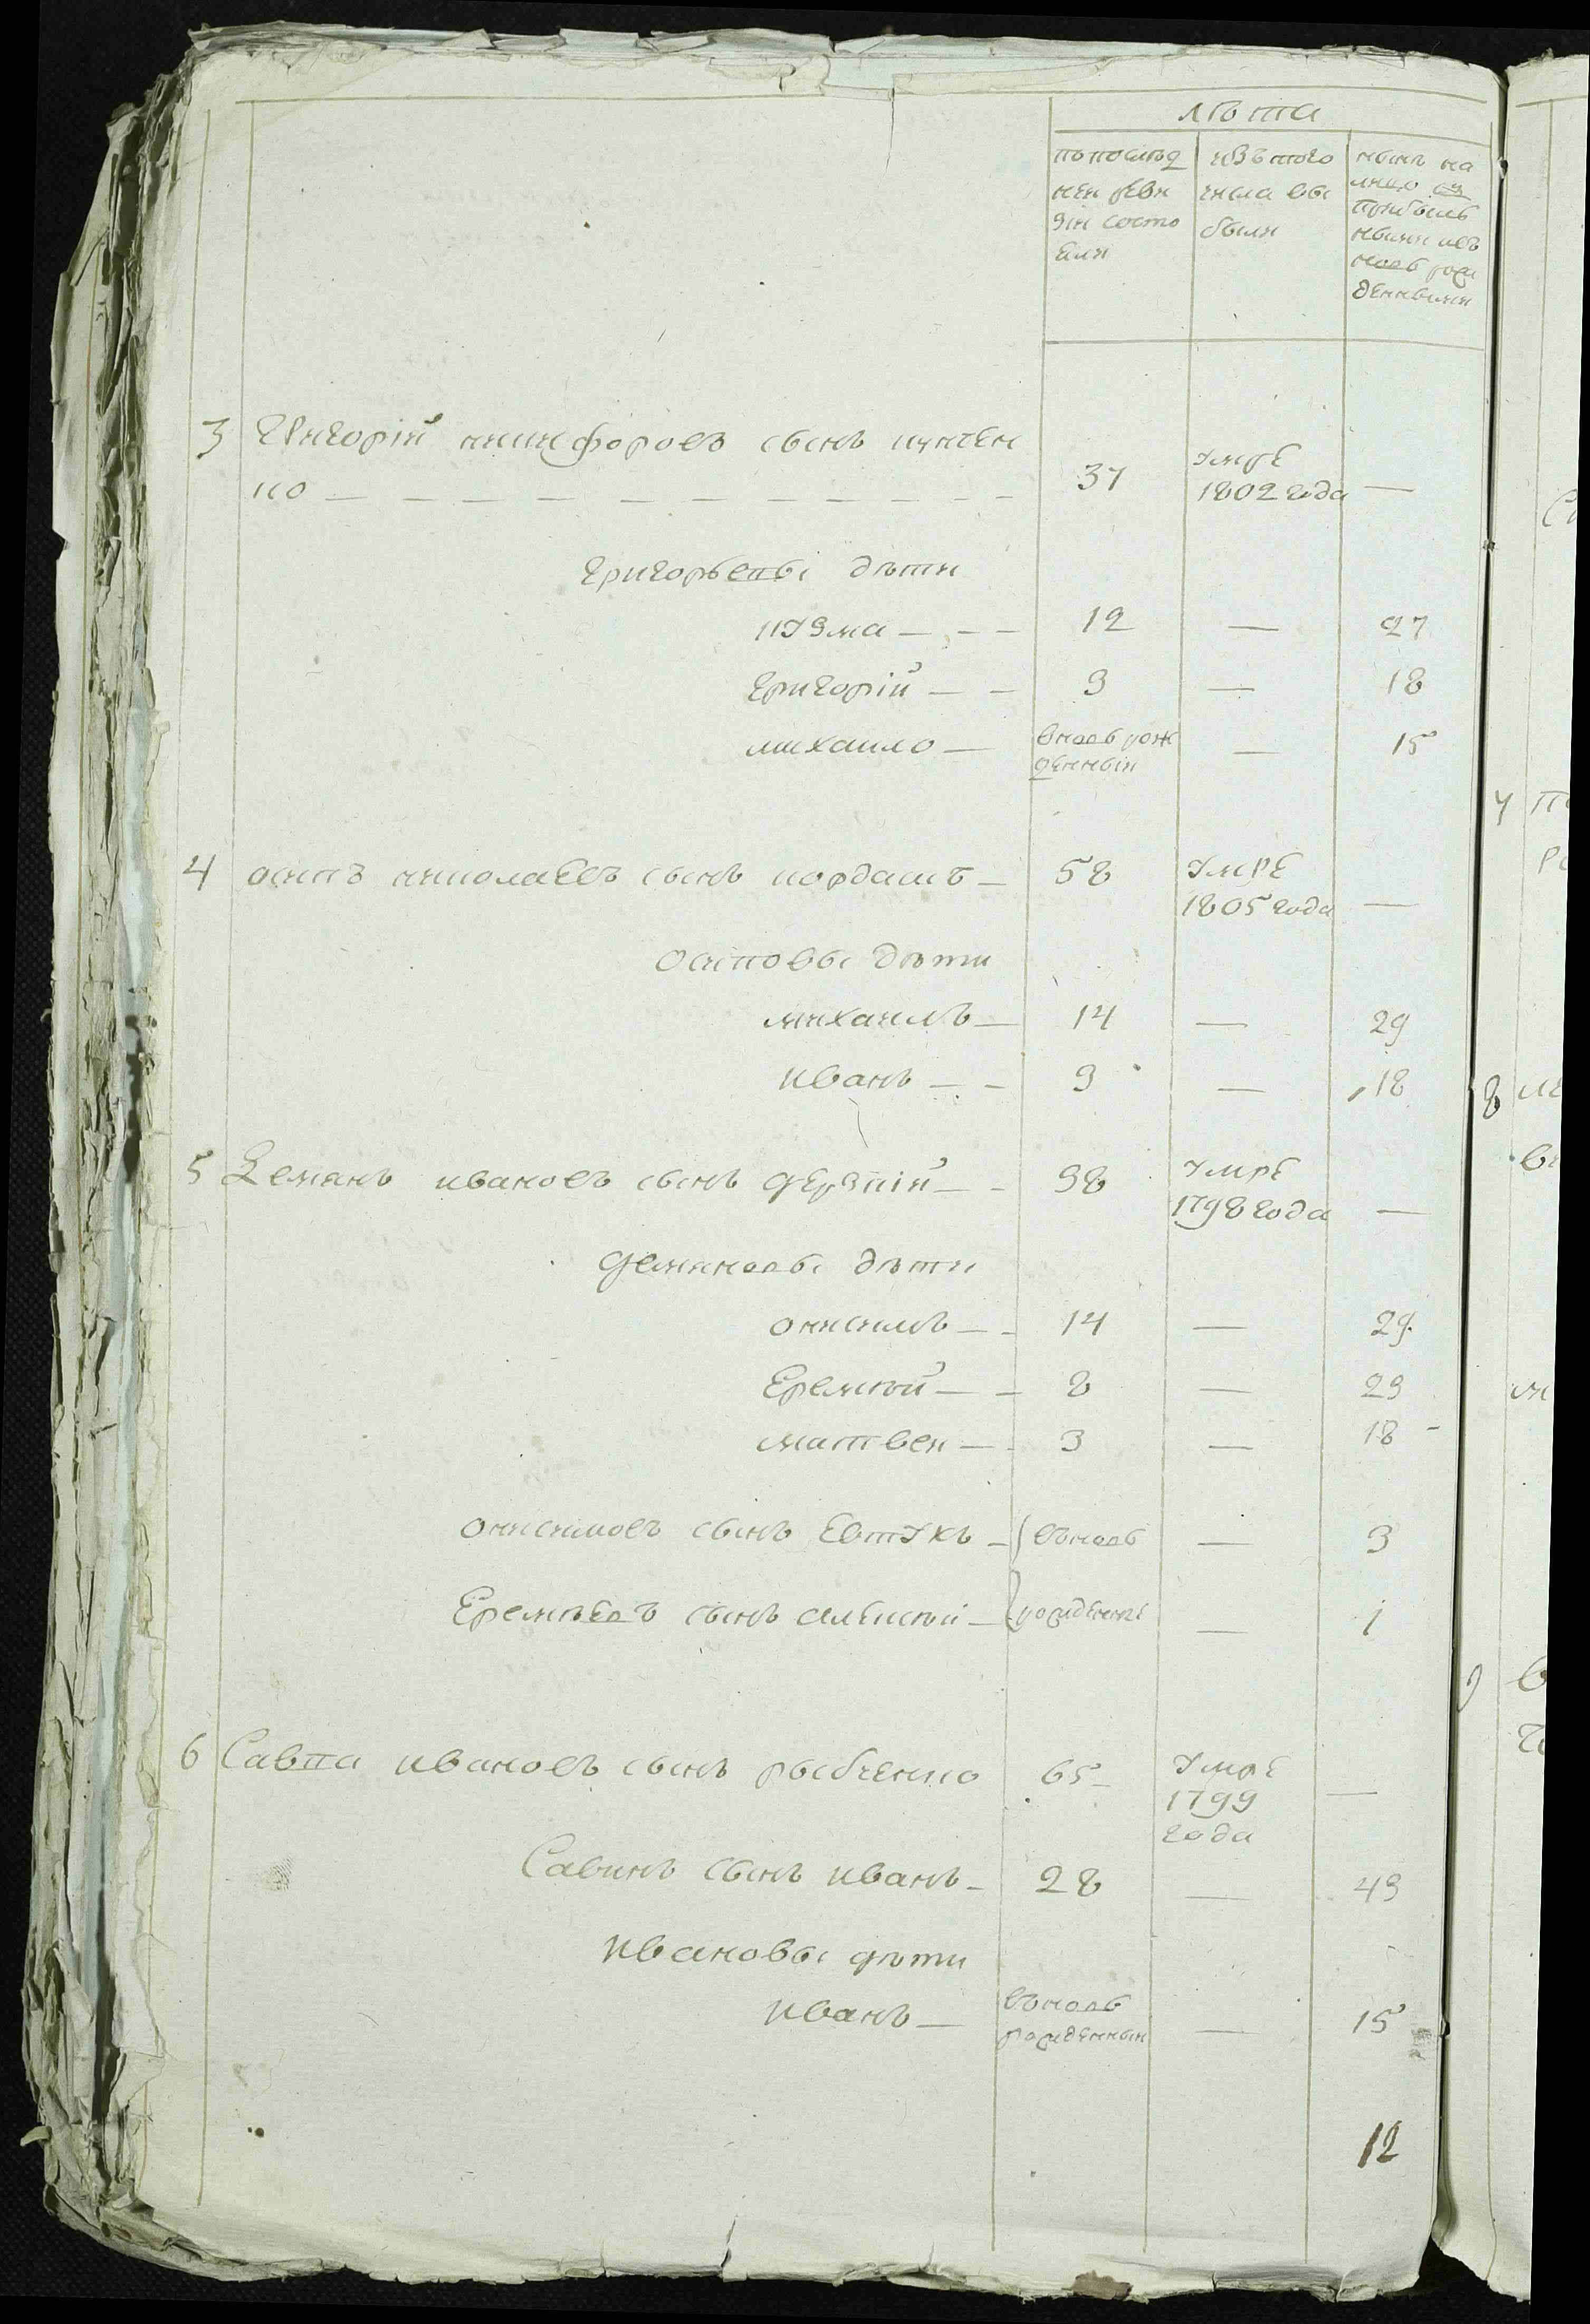 лѣта
попослѣд
ней реви
зіи состо
яли
изъ того
числа вы
были
нынѣ на
лицо съ
прибыль
ными изъ
новъ рож
денными
3 Григорій никифоровъ сынъ
ко — — — — — — — — — — 37 умре
1802 года —
григорьевы дѣти
кузма — — — 12 — 27
григорій — — 3 — 18
михаило — вновь рож
денный — 15
4 осипъ николаевъ сынъ кордашъ — 58 умре
1805 года —
осиповы дѣти
михаилъ — 14 — 29
иванъ — — 3 — 18
5 Демянъ ивановъ сынъ дерзкій — — 38 умре
1798 года —
демяновы дѣти
онисимъ — — 14 — 29
Еремѣй — — 8 — 23
матвеи — — 3 — 18
онисимовъ сынъ Евтухъ — въновь — 3
Еремѣевъ сынъ алексѣй — рожденные — 1
6 Савка ивановъ сынъ рыбченко 65 — умре
1799
года —
Савинъ сынъ иванъ — 28 — 43
ивановы дѣти
иванъ — въновь
рожденный — 15
12